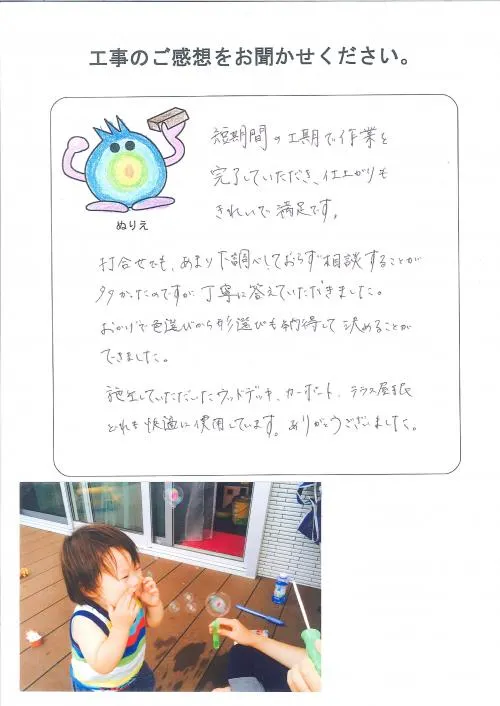 工事のご感想をお聞かせください。
短期間の工期で作業を
完了していただき、仕上がりも
きれいで満足です。
ぬりえ
打合せでも、あまり下調べしておらず相談することが
多かったのですが丁寧に答えていただきました。
おかげで色選びから形選びも納得して決めることが
できました。
施工していただいたウッドデッキ、カーポート、テラス屋根
どれも快適に使用しています。ありがとうございました。